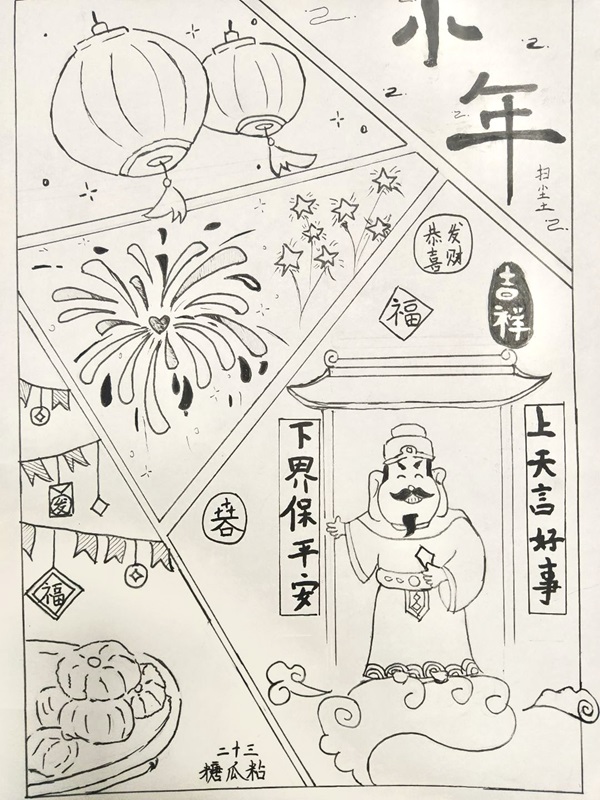 小年
扫尘土
恭喜
发财
吉祥
福
上天言好事
下界保平安
发
福
二十三
糖瓜粘